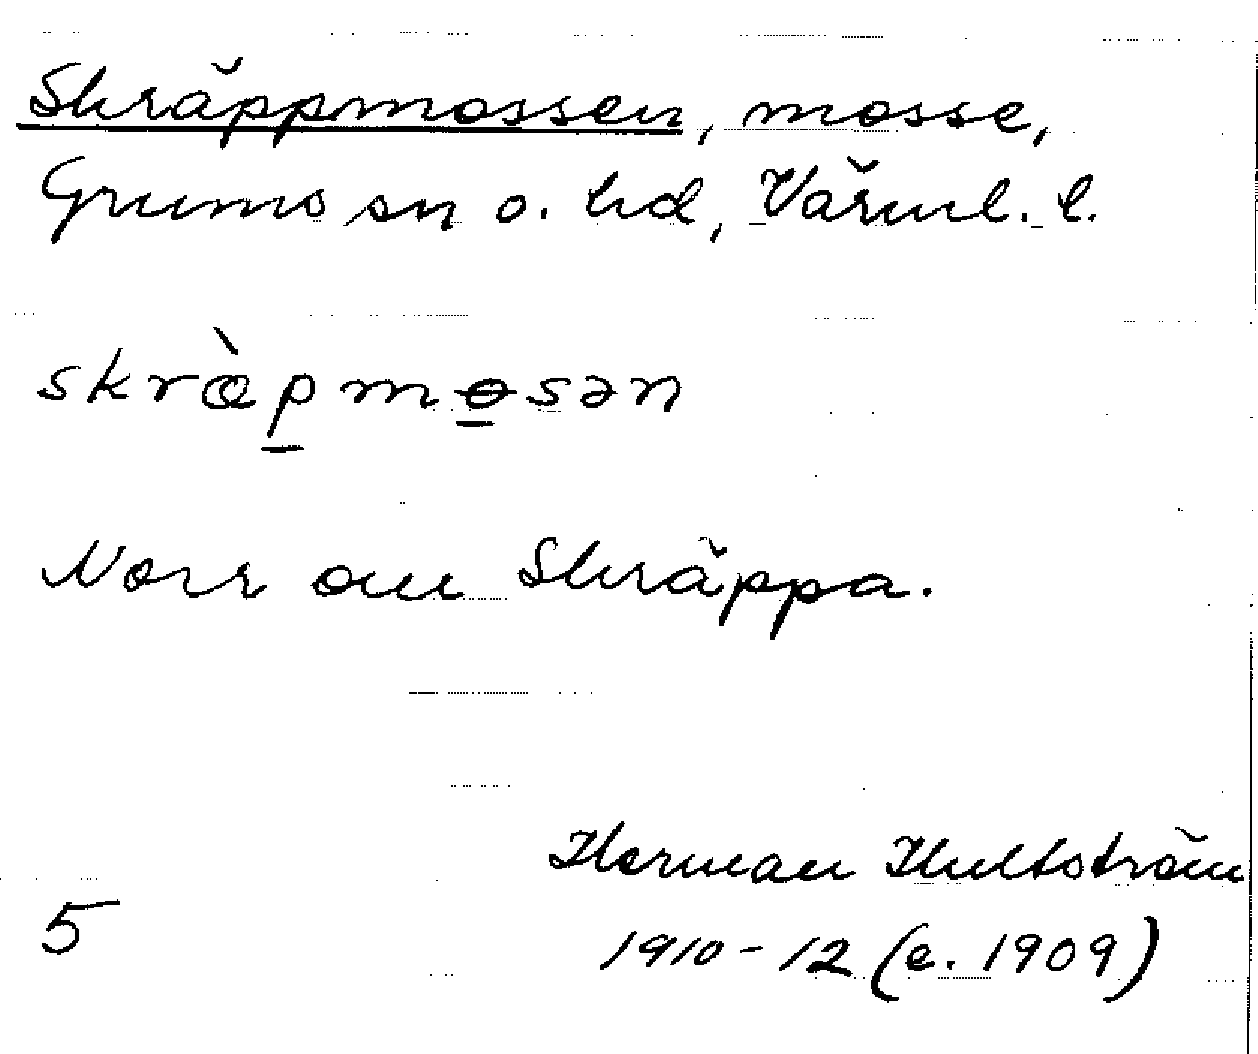 Skräppmossen, mosse,
Grums sn o. hd, Värml. l.
skræ̀p̲mɵ̲sən
Norr om Skräppa.
Herman Hultström
5
1910-12 (e. 1909)